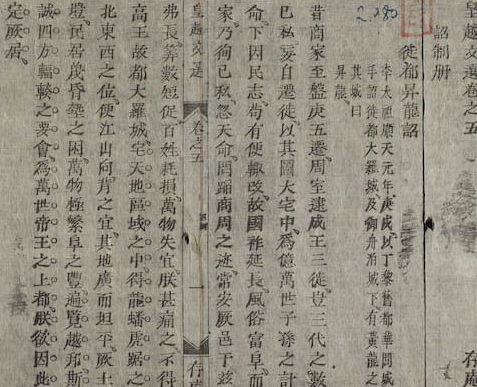 皇越文選卷之五 存庵
詔制册
徙都昇龍詔
李太祖順天元年庚戌以丁黎舊都華閭城
手詔徙都大羅城及御舟泊城下有黃龍之
其城曰
昇龍
昔商家至盤庚五遷周室逮成王三徙豈三代之數
己私妄自遷徙以其圖大宅中爲億萬世子孫之計
命下因民志苟有便輒改故國祚延長風俗富阜而
家乃徇己私忽天命罔蹈商周之迹常安厥邑于茲
皇越文選 卷之五 一 存庵
弗長算數短促百姓耗損萬物失宜朕甚痛之不得
高王故都大羅城宅天地區域之中得龍蟠虎踞之
北東西之位便江山向背之宜其地廣而坦平厥土
塏民居蔑昏墊之困萬物極繁阜之豐遍覽越邦斯
誠四方輻輳之要會爲萬世帝王之上都朕欲因此
定厥居